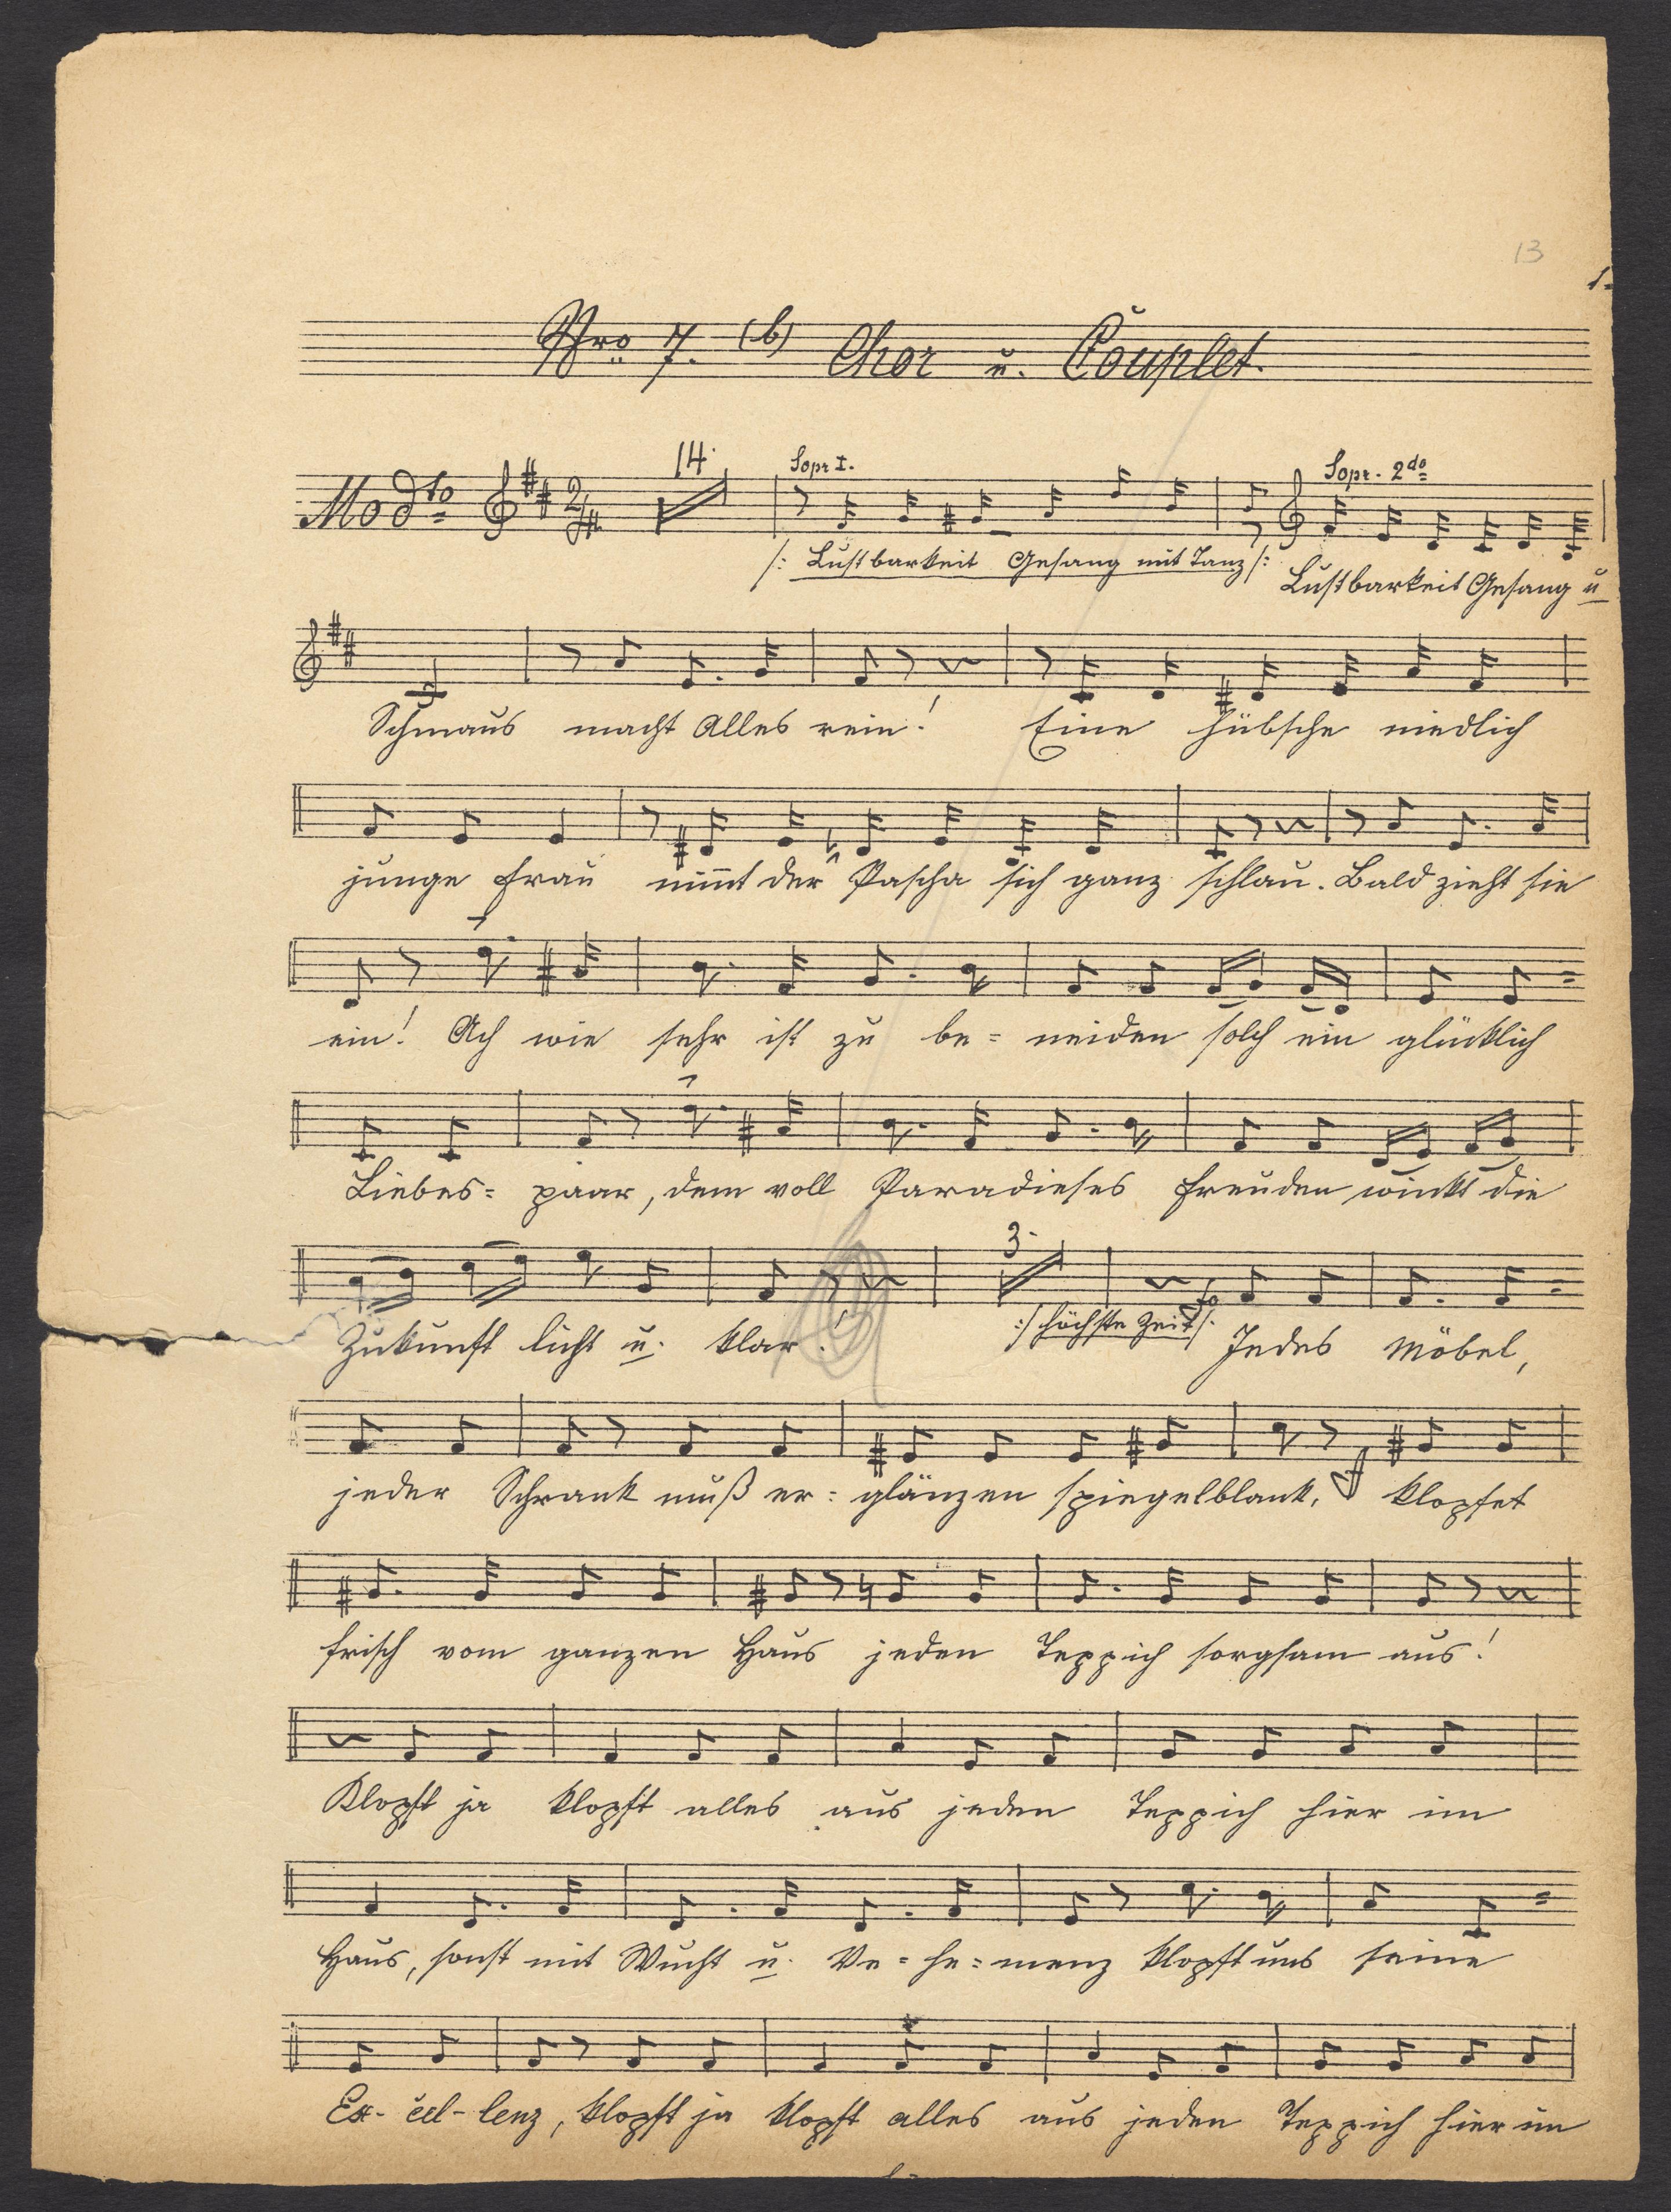 13
1.
Nro 7. (b) Chor u. Couplet.
Modto 2/4 14. Sopr I. Sopr. 2do
/: Lustbarkeit Gesang mit Tanz /: Lustbarkeit Gesang u
Schmaus macht Alles rein! Eine hübsche niedlich
junge Frau nim̅t der Pascha sich ganz schlau. Bald zieht sie
ein! Ach wie sehr ist zu be= neiden solch ein glücklich
Liebes= paar, dem voll Paradieses Freuden winkt die
3.
:/ höchste Zeit /:
Zukunft licht u. klar! Jedes Möbel,
jeder Schrank muß er= glänzen spiegelblank, klopfet
frisch vom ganzen Haus jeden Teppich sorgsam aus!
Klopft ja klopft alles aus jeden Teppich hier im
Haus, sonst mit Wucht u. Ve=he=menz klopft uns seine
Ex-cel-lenz, klopft ja klopft alles aus jeden Teppich hier im